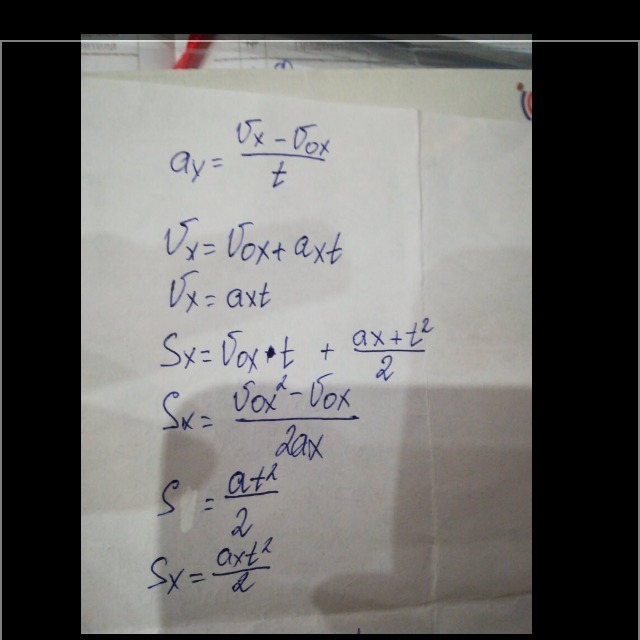 aₓ = (υₓ − υ₀ₓ) / t
υₓ = υ₀ₓ + aₓt
υₓ = aₓt
Sₓ = υ₀ₓ · t + (aₓ + t²) / 2
Sₓ = (υ₀ₓ² − υ₀ₓ) / 2aₓ
S = at² / 2
Sₓ = aₓt² / 2